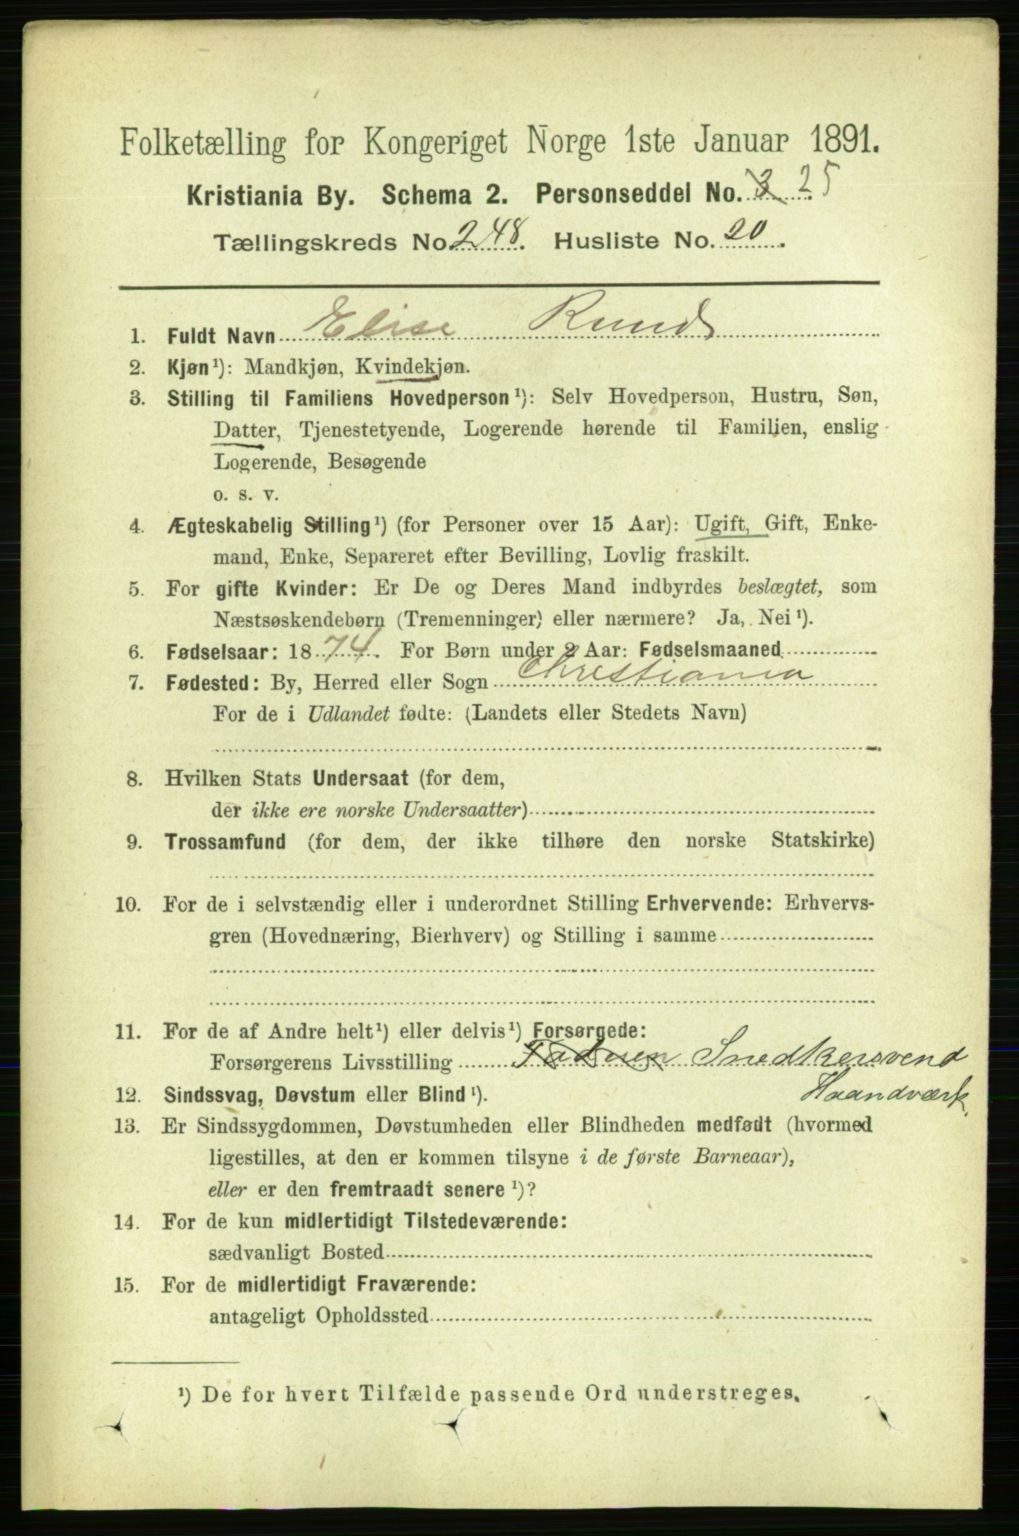 Folketælling for Kongeriget Norge 1ste Januar 1891.
Kristiania By. Schema 2. Personseddel No. 3 25
Tællingskreds No. 248. Husliste No. 20.
1. Fuldt Navn Elise Rund
2. Kjøn¹): Mandkjøn, Kvindekjøn.
3. Stilling til Familiens Hovedperson¹): Selv Hovedperson, Hustru, Søn,
Datter, Tjenestetyende, Logerende hørende til Familien, enslig
Logerende, Besøgende
o. s. v.
4. Ægteskabelig Stilling¹) (for Personer over 15 Aar): Ugift, Gift, Enke-
mand, Enke, Separeret efter Bevilling, Lovlig fraskilt.
5. For gifte Kvinder: Er De og Deres Mand indbyrdes beslægtet, som
Næstsøskendebørn (Tremenninger) eller nærmere? Ja, Nei¹).
6. Fødselsaar: 1874. For Børn under 2 Aar: Fødselsmaaned
7. Fødested: By, Herred eller Sogn Christiania
For de i Udlandet fødte: (Landets eller Stedets Navn)
8. Hvilken Stats Undersaat (for dem,
der ikke ere norske Undersaatter)
9. Trossamfund (for dem, der ikke tilhøre den norske Statskirke)
10. For de i selvstændig eller i underordnet Stilling Erhvervende: Erhvervs-
gren (Hovednæring, Bierhverv) og Stilling i samme
11. For de af Andre helt¹) eller delvis¹) Forsørgede:
Forsørgerens Livsstilling Snedkersvend
12. Sindssvag, Døvstum eller Blind¹). Haandværk.
13. Er Sindssygdommen, Døvstumheden eller Blindheden medfødt (hvormed
ligestilles, at den er kommen tilsyne i de første Barneaar),
eller er den fremtraadt senere¹)?
14. For de kun midlertidigt Tilstedeværende:
sædvanligt Bosted
15. For de midlertidigt Fraværende:
antageligt Opholdssted
¹) De for hvert Tilfælde passende Ord understreges.